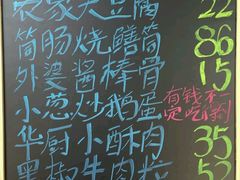 农家大豆腐 22
筒肠烧鳝筒 86
外婆酱棒骨 15
小葱炒鹅蛋 有钱不一定吃得到
华厨小酥肉 35
黑椒牛肉粒 52